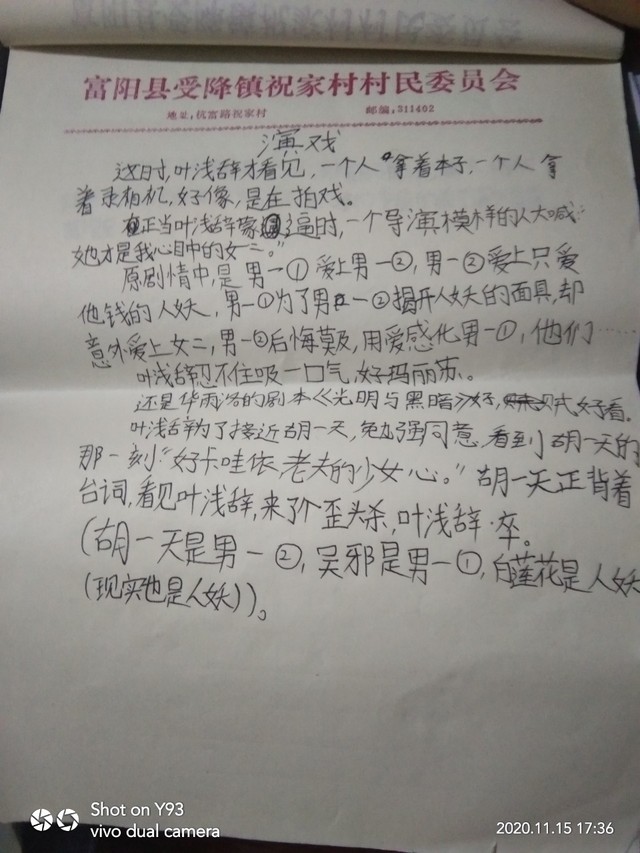 富阳县受降镇祝家村村民委员会
地址:杭富路祝家村 邮编:311402
演戏
这时,叶浅辞才看见,一个人拿着本子,一个人拿
着录相机,好像,是在拍戏。
正当叶浅辞蒙逼时,一个导演模样的人大喊"
她才是我心目中的女二。"
原剧情中,是男一①爱上男一②,男一②爱上只爱
他钱的人妖,男一①为了男一②揭开人妖的面具,却
意外爱上女二,男一②后悔莫及,用爱感化男一①,他们……
叶浅辞忍不住吸一口气,好玛丽苏。
还是华雨洛的剧本《光明与黑暗》好,好看。
叶浅辞为了接近胡一天,勉强同意,看到胡一天的
那一刻"好卡哇依,老夫的少女心。"胡一天正背着
台词,看见叶浅辞,来了个歪头杀,叶浅辞·卒。
(胡一天是男一②,吴邪是男一①,白莲花是人妖
(现实也是人妖))。
Shot on Y93
vivo dual camera
2020.11.15 17:36